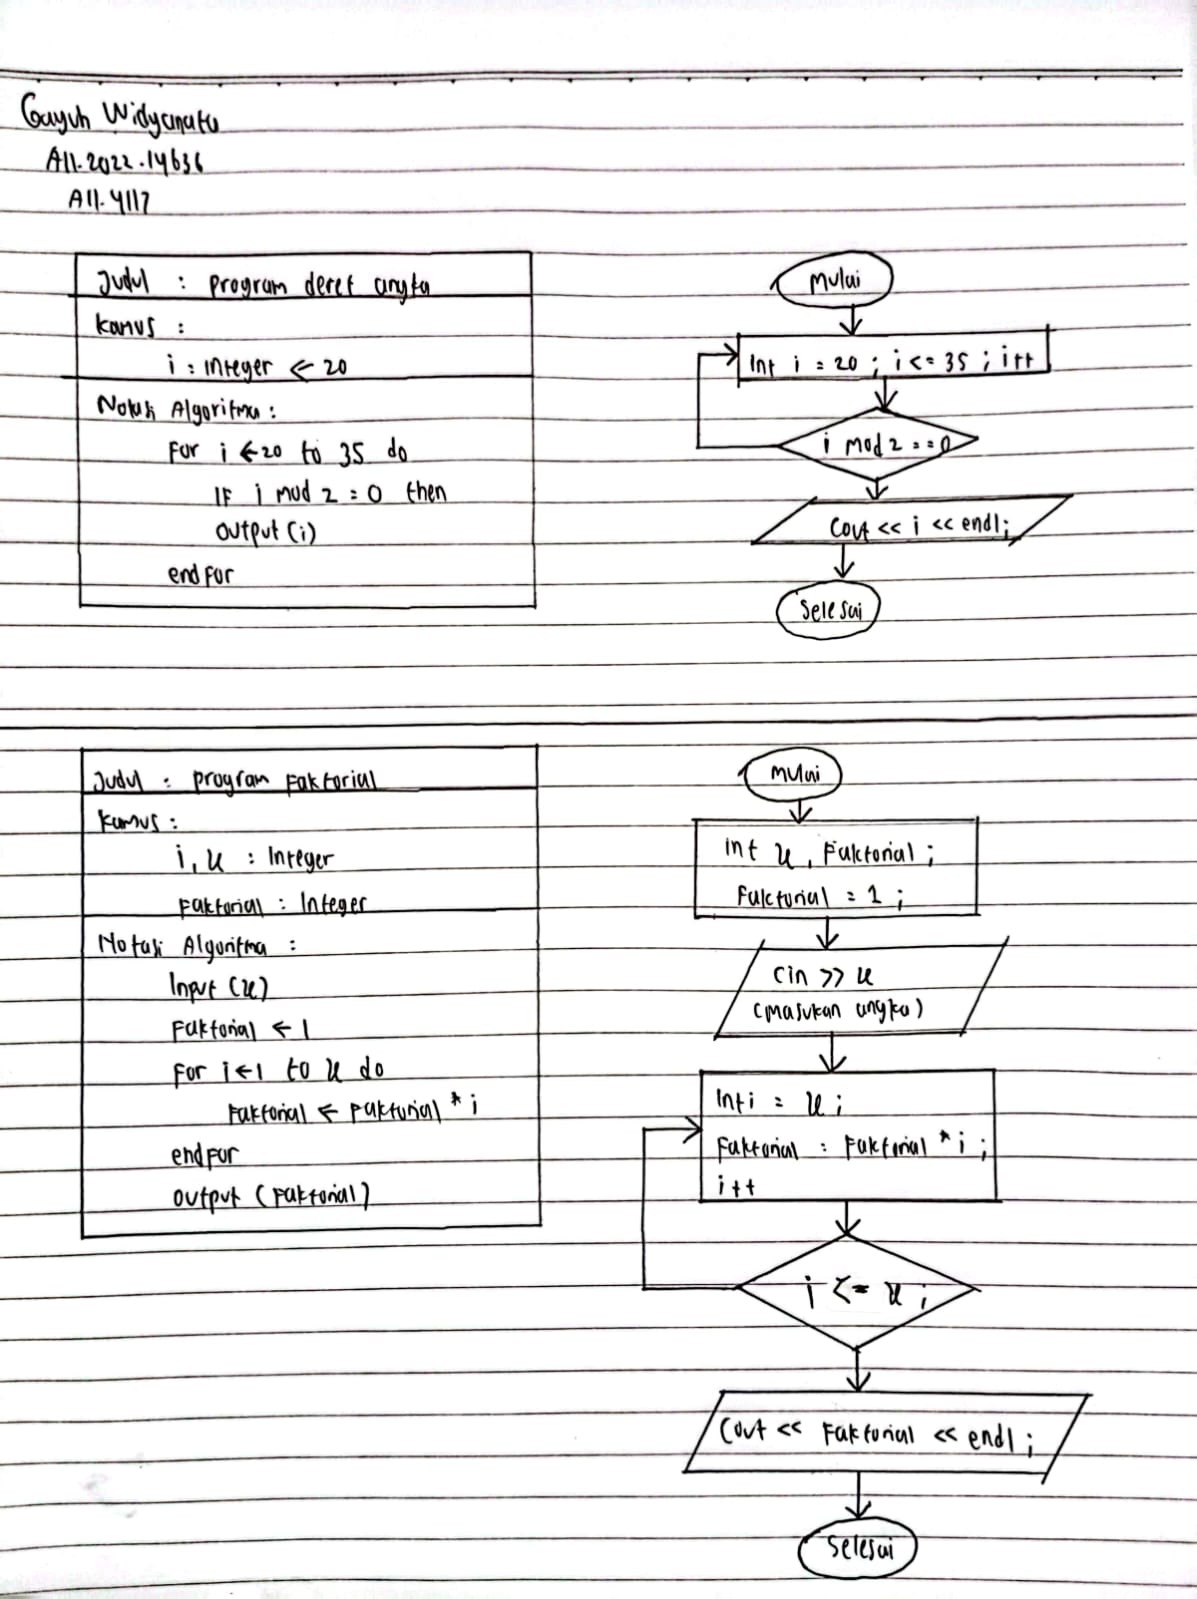 Gayuh Widyanata
A11.2022.14636
A11.4117
Judul : Program deret angka
Kamus :
i : Integer ← 20
Notasi Algoritma :
For i ← 20 to 35 do
IF i mod 2 = 0 then
output (i)
end for
Mulai
Int i = 20 ; i <= 35 ; i++
i mod 2 == 0
Cout << i << endl;
Selesai
Judul : Program Faktorial
Kamus :
i, x : Integer
Faktorial : Integer
Notasi Algoritma :
Input (x)
Faktorial ← 1
For i ← 1 to x do
Faktorial ← Faktorial * i
end for
output (Faktorial)
Mulai
Int x, Faktorial ;
Faktorial = 1 ;
Cin >> x
(masukan angka)
Int i = x ;
Faktorial = Faktorial * i ;
i++
i <= x ;
Cout << Faktorial << endl ;
Selesai